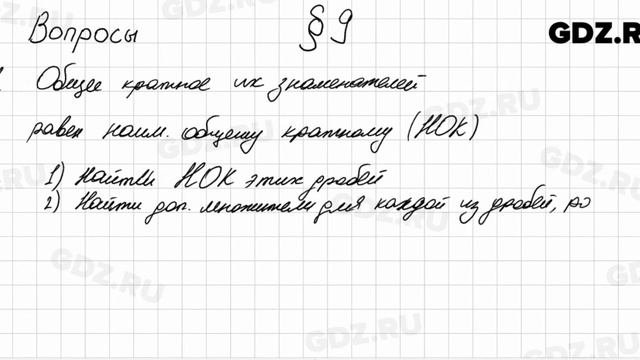 Вопросы § 9
GDZ.RU
Общее кратное их знаменателей
равен наим. общему кратному (НОК)
1) Найти НОК этих дробей
2) Найти доп. множители для каждой из дробей, ро
GDZ.RU
GDZ.RU
GDZ.RU
GDZ.RU
GDZ.RU